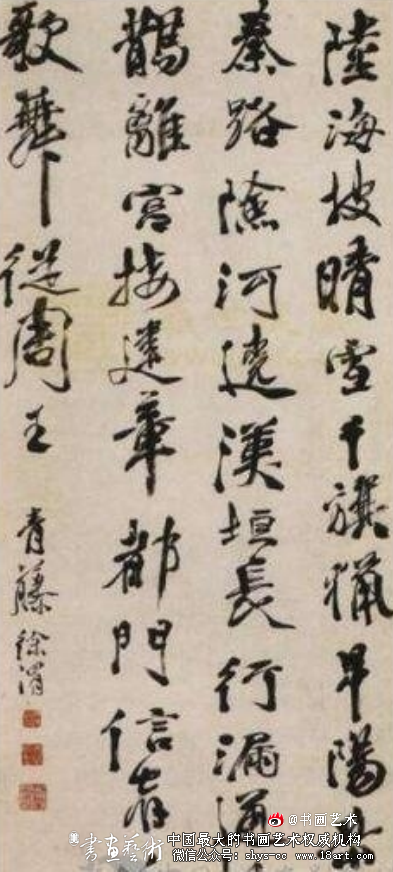 陸海披晴雪千旗獵早陽
秦路險河遶漢垣長行漏通
鵲離宮接建章都門信宿
歌舞從周王
青藤徐渭
@书画艺术
書畫藝術
中国最大的书画艺术权威机构
微信公众号:shys-cc www.18art.com